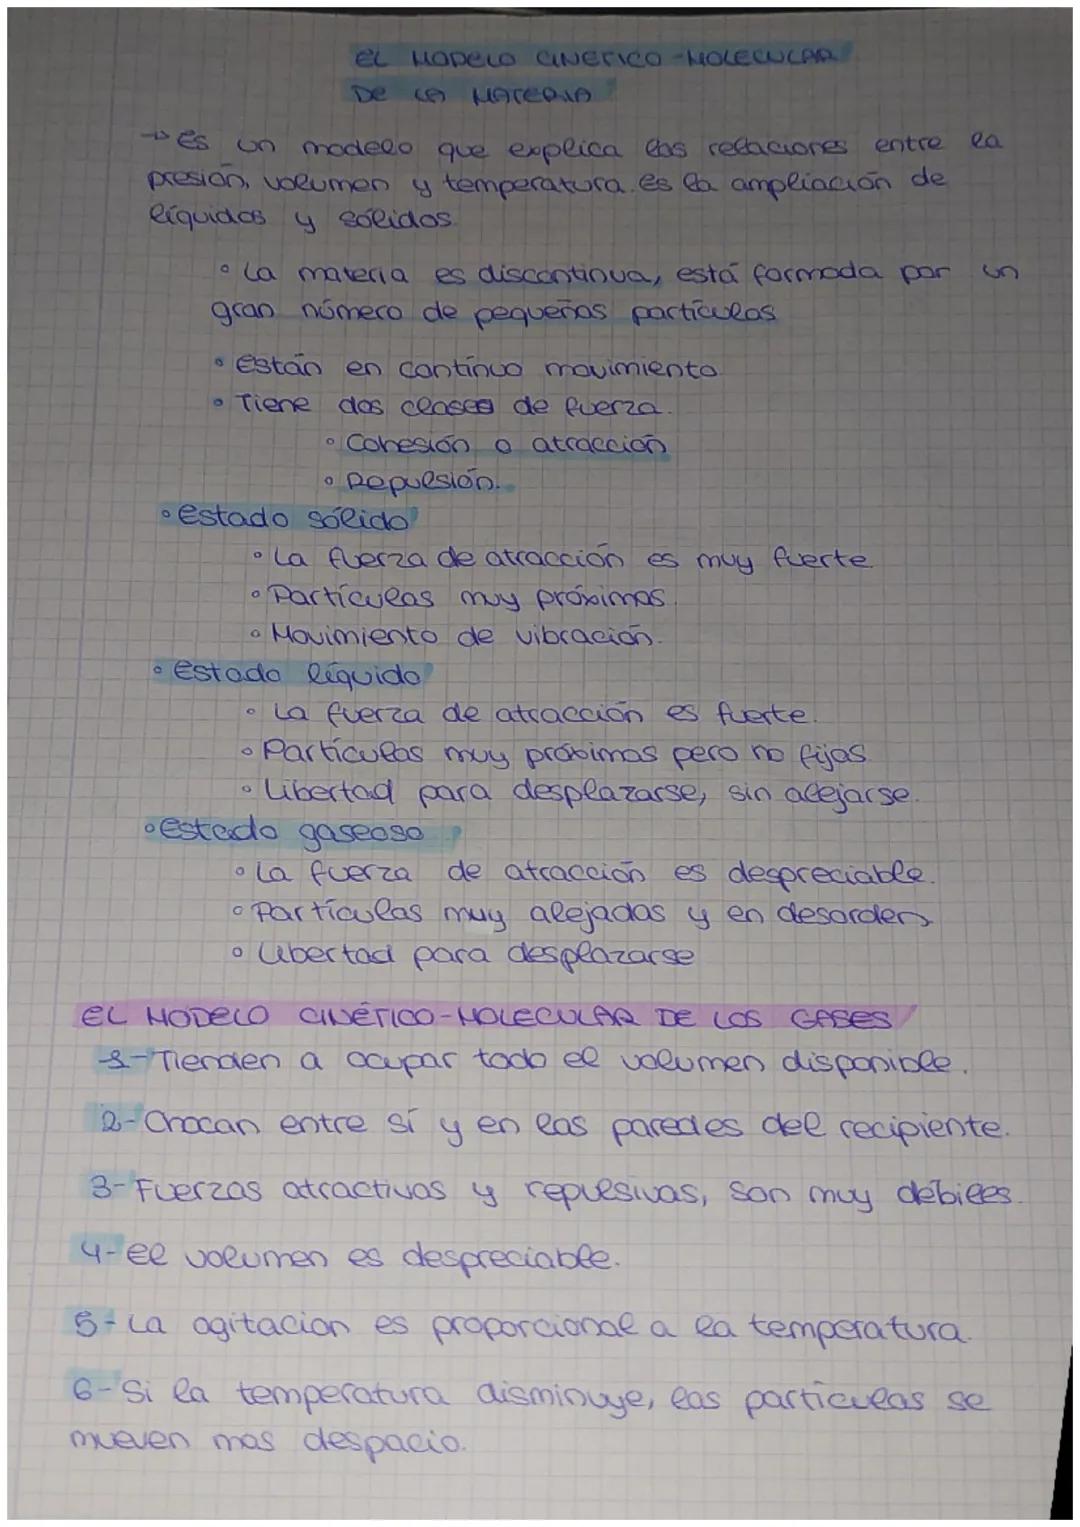 EL MODELO CINETICO-MOLECULAR
DE LA MATERIA
→ Es un modelo que explica las relaciones entre la
presión, volumen y temperatura. Es la ampliación de
líquidos y sólidos.
• La materia es discontinua, está formada por un
gran número de pequeñas partículas
• Están en contínuo movimiento
• Tiene dos clases de fuerza.
• Cohesión o atracción
• Repulsión.
• Estado sólido
• La fuerza de atracción es muy fuerte
• Partículas muy próximas.
• Movimiento de vibración.
• Estado líquido
• La fuerza de atracción es fuerte.
• Partículas muy próximas pero no fijas
• Libertad para desplazarse, sin alejarse.
• Estado gaseoso
• La fuerza de atracción es despreciable.
• Partículas muy alejadas y en desorden
• Libertad para desplazarse
EL MODELO CINÉTICO-MOLECULAR DE LOS GASES
1-Tienden a ocupar todo el volumen disponible.
2-Chocan entre sí y en las paredes del recipiente.
3-Fuerzas atractivas y repulsivas, son muy débiles.
4-El volumen es despreciable.
5-La agitacion es proporcional a la temperatura.
6-Si la temperatura disminuye, las partículas se
mueven mas despacio.